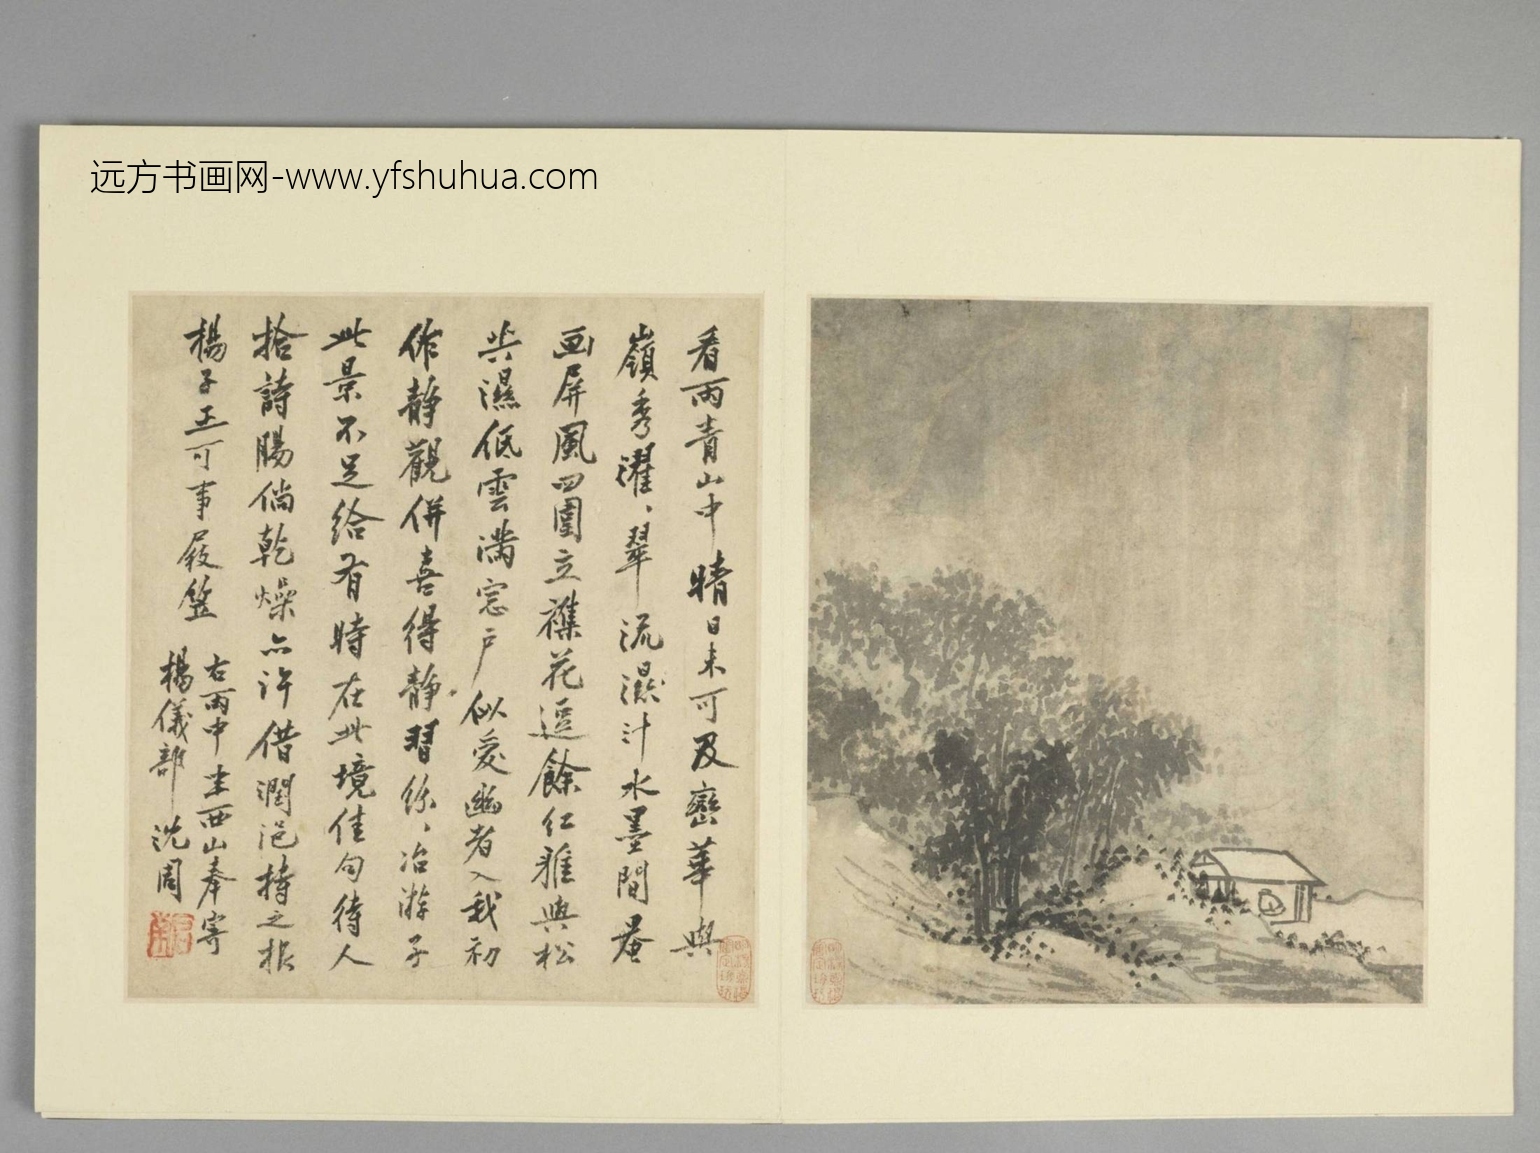 远方书画网-www.yfshuhua.com
看雨青山中晴日未可及巒華與
嶺秀濯、翠流濕汁水墨間晻
画屏風四圍立襍花逗餘紅雅與松
共濕低雲满窓户似愛幽者入我初
作静觀併喜得静習紛、冶游子
此景不足给有時在此境佳句待人
拾詩腸倘乾燥亦许借潤浥持之报
楊子正可事屐笠
右雨中坐西山奉寄
楊儀部 沈周